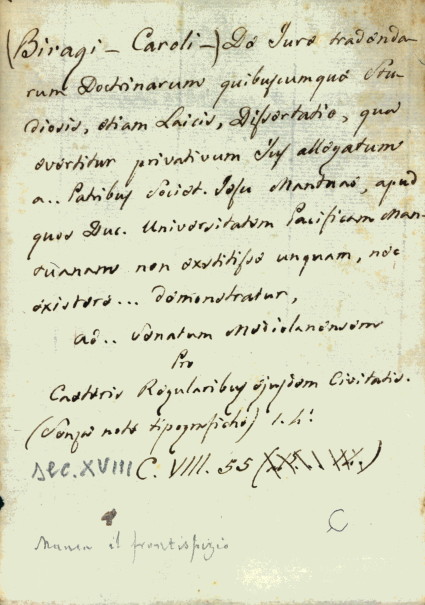 (Biragi - Caroli -) De Jure tradenda-
rum Doctrinarum quibuscumque Stu-
diosis, etiam Laicis, Dissertatio, qua
evertitur privativum Jus allegatum
a.. Patribus Societ. Jesu Mantuae, apud
quos Duc. Universitatem Pacificam Man-
tuanam non exstitisse unquam, nec
existere... demonstratur,
ad.. Senatum Mediolanensem
Pro
Caeteris Regularibus ejusdem Civitatis.
(Senza note tipografiche) 1. 4.°
sec. XVIII C. VIII. 55
C
Manca il frontispizio